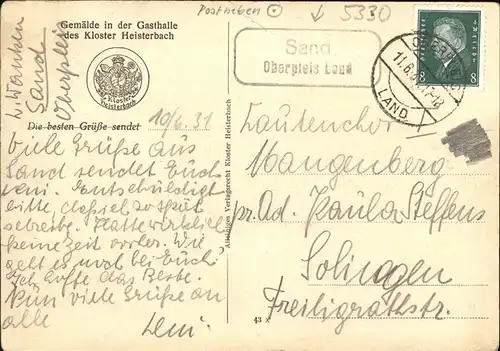 Posthelben
5330
Gemälde in der Gasthalle
des Kloster Heisterbach
Kloster
Heisterbach
Die besten Grüße sendet
10/6.31
Viele Grüße aus
Sand sendet Euch
Leni. Entschuldigt
bitte, daß ich so spät
schreibe. Hatte wirklich
keine Zeit vorher. Wie
geht es noch bei Euch?
Ich hoffe das Beste.
Nun viele Grüße an
alle
Leni.
Sand
Oberpleis
Alleiniges Verlagsrecht Kloster Heisterbach
43 x
Sand
Oberpleis Land
11.6.
LAND
8 8
Lautenchor
Mangenberg
pr. Ad. Paula Steffens
Solingen
Freiligrathstr.